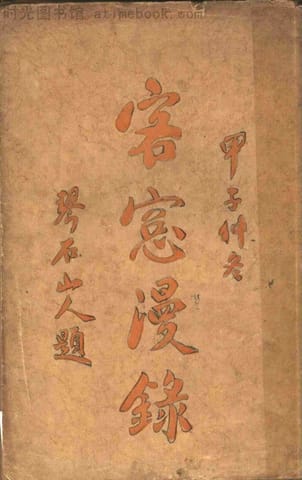 时光图书馆 atimebook.com
甲子仲冬
客窓漫錄
琴石山人題